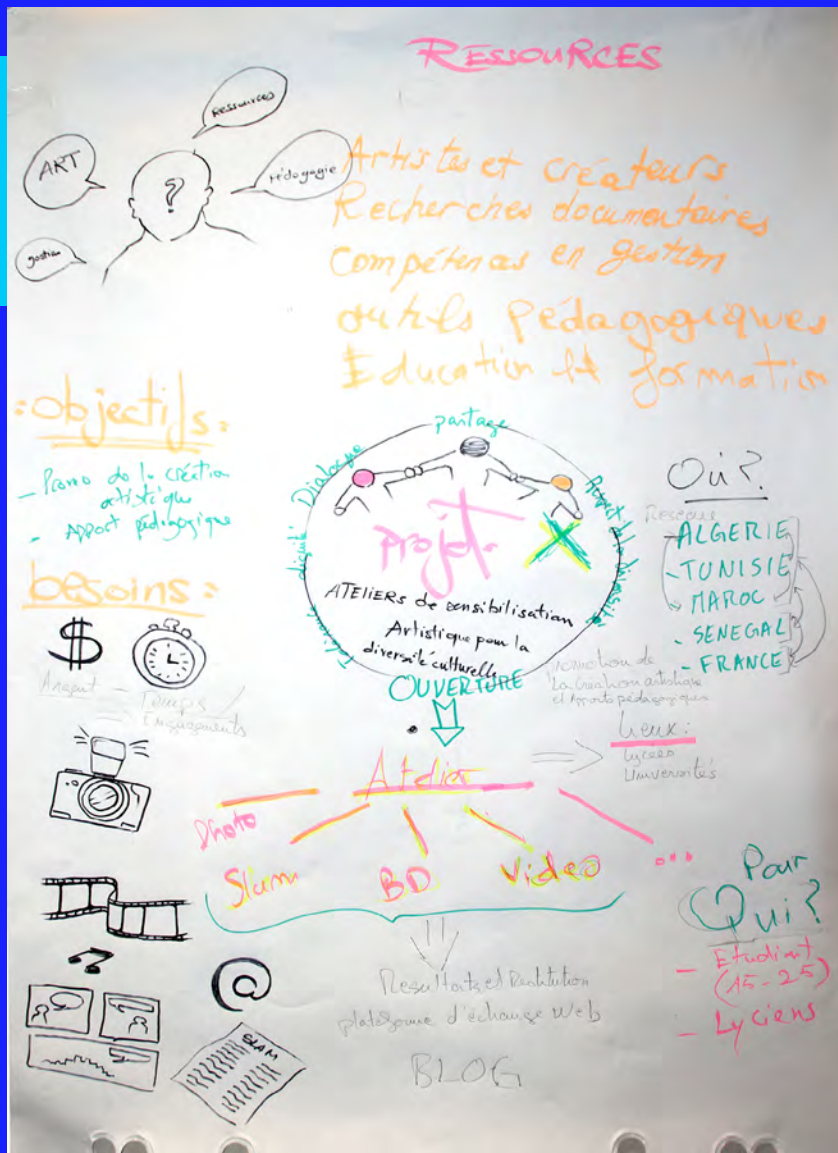 RESSOURCES
Ressources
ART
Pédagogie
gestion
?
Artistes et créateurs
Recherches documentaires
Compétences en gestion
outils pédagogiques
Education et formation
:objectifs:
- Promo de la création
artistique
- Apport pédagogique
besoins:
$
Argent - Temps /
Engagements
partage
Dialogue
Respect de la diversité
dignité
Tolérance
projet
ATELIERs de sensibilisation
Artistique pour la
diversité culturelle
OUVERTURE
Où?
Reseau
- ALGERIE
- TUNISIE
- MAROC
- SENEGAL
- FRANCE
promotion de
la création artistique
et Apports pédagogiques
Lieux:
Lycées
Universités
Atelier
Photo
Slam
BD
Video
...
Pour
Qui?
- Etudiant
(15-25)
- Lyciens
@
SLAM
Resultats et Restitution
plateforme d'échange Web
BLOG